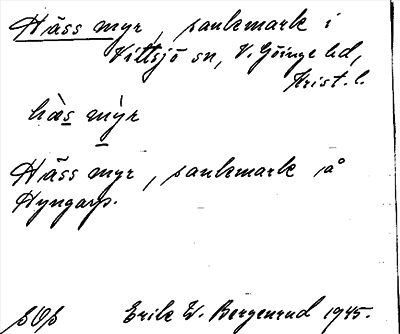 Häss myr, sankmark i
Vittsjö sn, V. Göinge hd,
Krist. l.
hàs mỳr
Häss myr, sankmark å
Hyngarp.
Erik W. Bergenrud 1945.